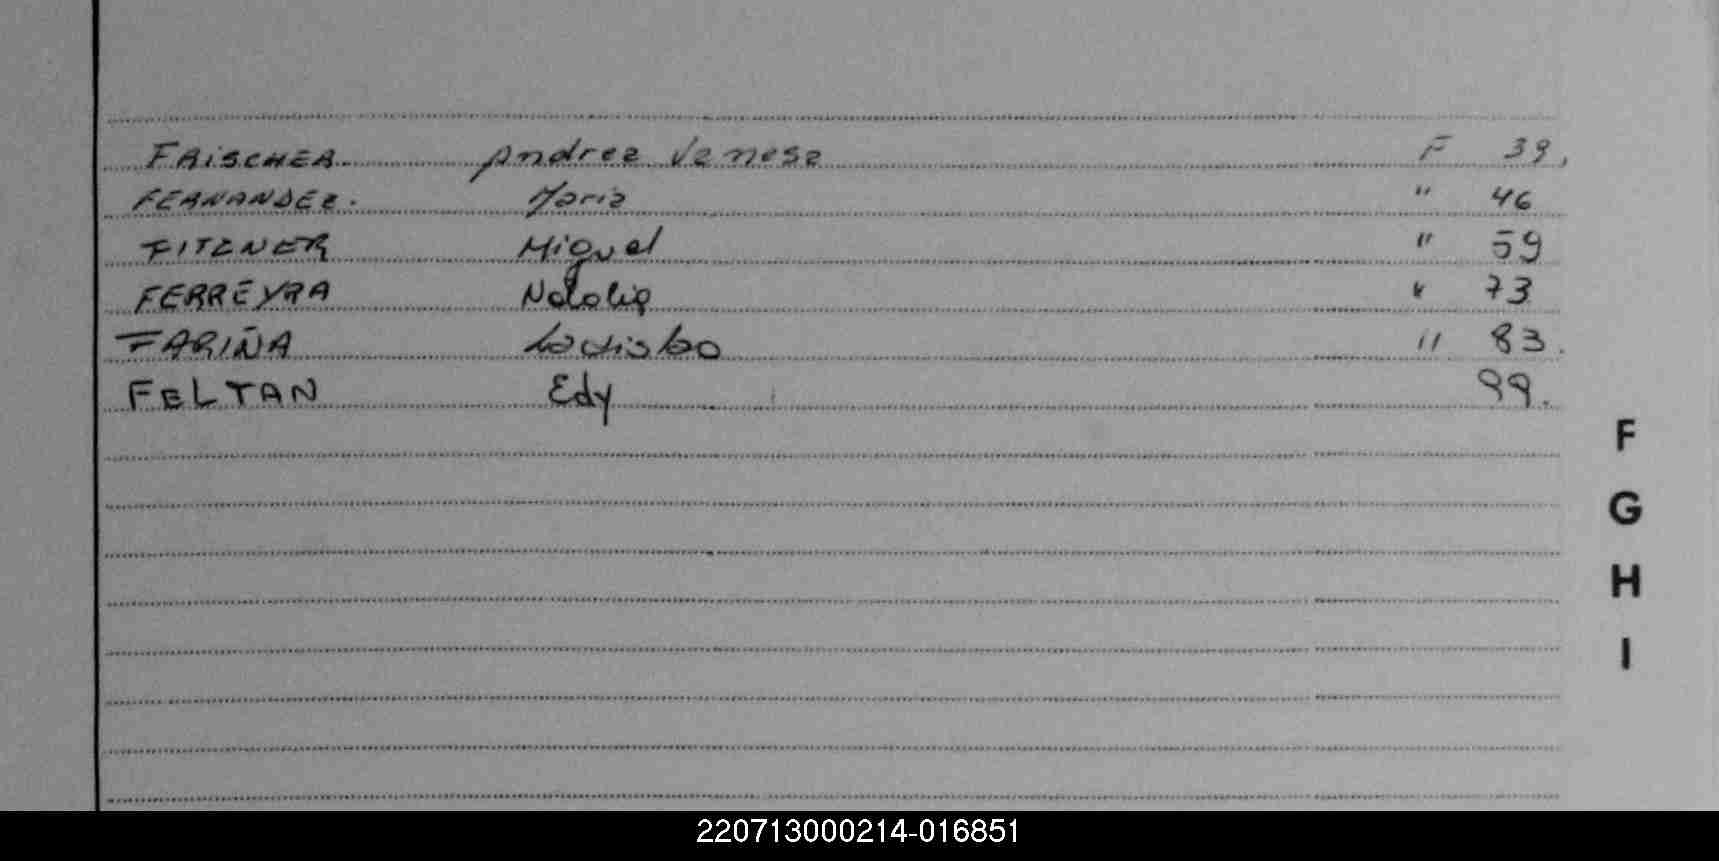 FRISCHER. Andrea Vanesa F 39,
FERNANDEZ. Maria " 46
FITZNER Miguel " 59
FERREYRA Natalia " 73
FARIÑA Ladislao " 83.
FELTAN Edy 99.
F
G
H
I
220713000214-016851